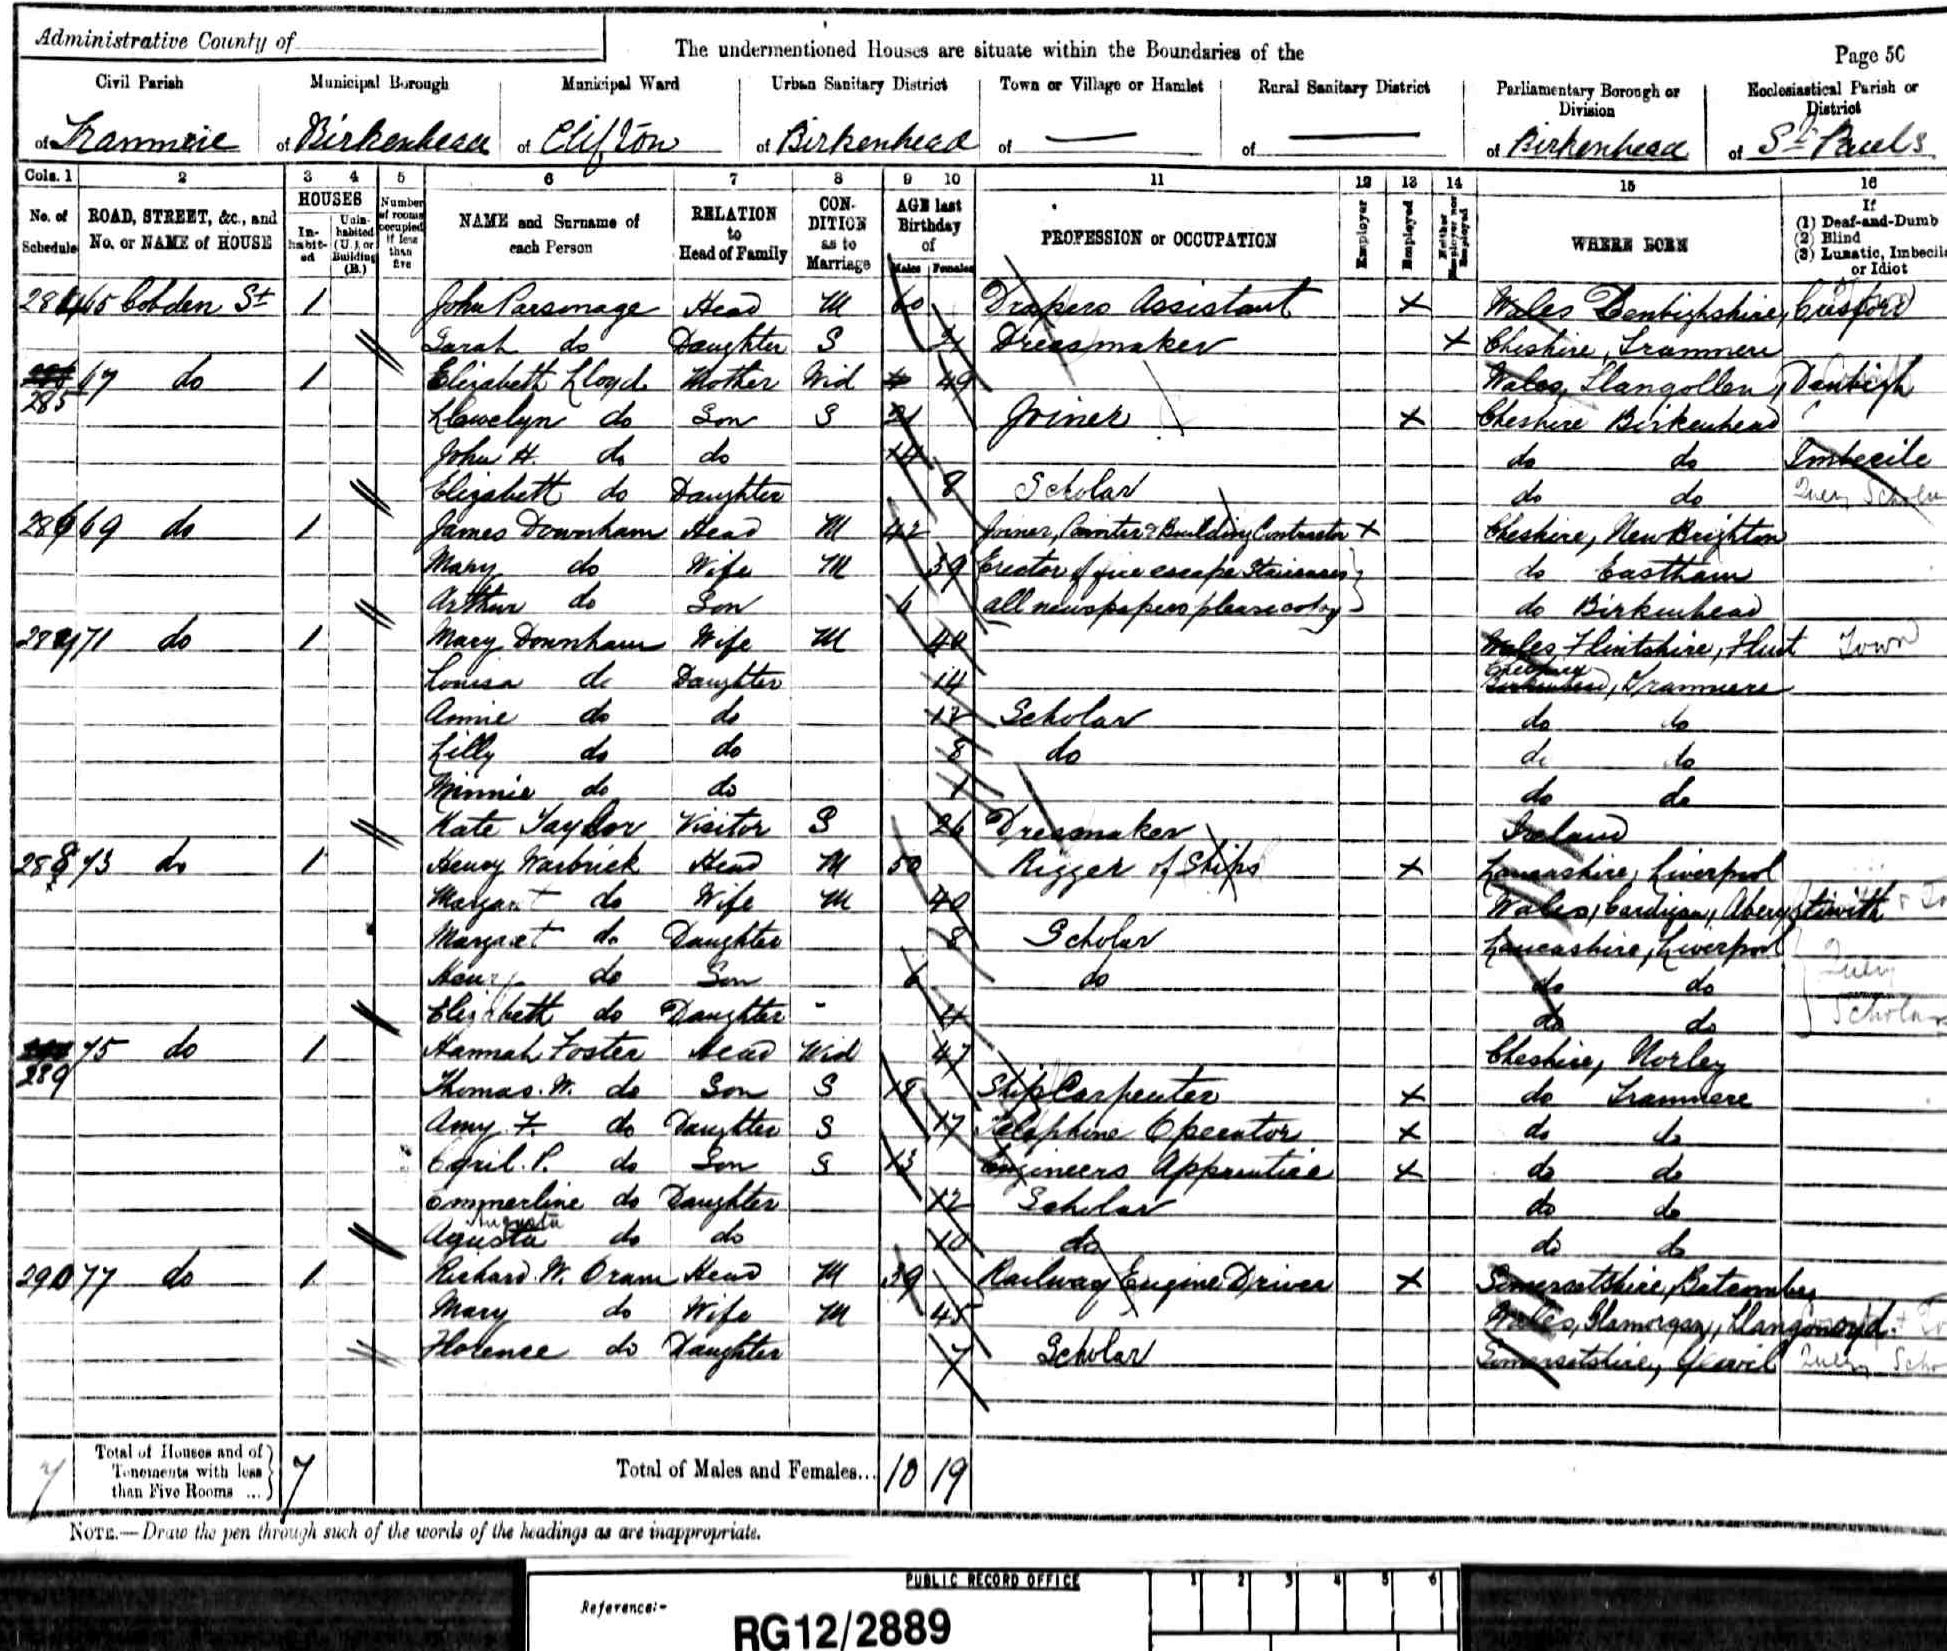 Administrative County of
The undermentioned Houses are situate within the Boundaries of the
Page 50
Civil Parish Municipal Borough Municipal Ward Urban Sanitary District Town or Village or Hamlet Rural Sanitary District Parliamentary Borough or Division Ecclesiastical Parish or District
of Tranmere of Birkenhead of Clifton of Birkenhead of — of — of Birkenhead of St Pauls
Cols. 1 2 3 4 5 6 7 8 9 10 11 12 13 14 15 16
No. of Schedule ROAD, STREET, &c., and No. or NAME of HOUSE HOUSES In-habit-ed Unin-habited (U.), or Building (B.) Number of rooms occupied if less than five NAME and Surname of each Person RELATION to Head of Family CON-DITION as to Marriage AGE last Birthday of Males Females PROFESSION or OCCUPATION Employer Employed Neither Employer nor Employed WHERE BORN If (1) Deaf-and-Dumb (2) Blind (3) Lunatic, Imbecile or Idiot
284 65 Cobden St 1 John Parsonage Head M 60 Drapers Assistant X Wales Denbighshire,
Sarah do Daughter S Dressmaker X Cheshire, Tranmere
285 67 do 1 Elizabeth Lloyd Mother Wid 49 Wales, Llangollen, Denbigh
Llewelyn do Son S 21 Joiner X Cheshire Birkenhead
John H. do do 14 do do Imbecile
Elizabeth do Daughter 8 Scholar do do Query Scholar
286 69 do 1 James Downham Head M 42 Joiner, Painter & Building Contractor X Cheshire, New Brighton
Mary do Wife M 39 Erector of fire escape Staircases do Eastham
Arthur do Son 6 all newspapers please copy do Birkenhead
287 71 do 1 Mary Downham Wife M 40 Wales, Flintshire, Flint Town
Louisa do Daughter 14 Cheshire Birkenhead, Tranmere
Annie do do 12 Scholar do do
Lilly do do 8 do do do
Minnie do do 1 do do
Kate Taylor Visitor S 26 Dresmaker Ireland
288 73 do 1 Henry Warbrick Head M 50 Rigger of Ships X Lancashire, Liverpool
Margaret do Wife M 40 Wales, Cardigan, Aberystwith
Margaret do Daughter 8 Scholar Lancashire, Liverpool
Henry do Son 6 do do do Query
Elizabeth do Daughter - 4 do do Scholars
289 75 do 1 Hannah Foster Head Wid 47 Cheshire, Norley
Thomas. W. do Son S 18 Ship Carpenter X do Tranmere
Amy F. do Daughter S 17 Telephine Operator X do do
Cyril. P. do Son S 15 Engineers Apprentice X do do
Emmerline do Daughter 12 Scholar do do
Augusta
Agusta do do 10 do do do
290 77 do 1 Richard W. Oram Head M 39 Railway Engine Driver X Somersetshire, Batcombe
Mary do Wife M 45 Wales, Glamorgan, Llangonoyd.
Florence do Daughter 7 Scholar Somersetshire, Yeovil Query Scho
7 Total of Houses and of Tenements with less than Five Rooms ... 7 Total of Males and Females... 10 19
NOTE.—Draw the pen through such of the words of the headings as are inappropriate.
PUBLIC RECORD OFFICE
1 2 3 4 5 6
Reference:-
RG12/2889